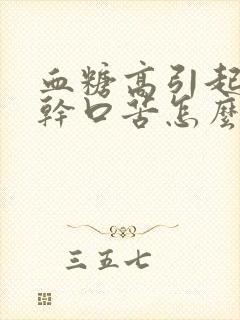 血糖高引起
幹口苦怎麼
三五七